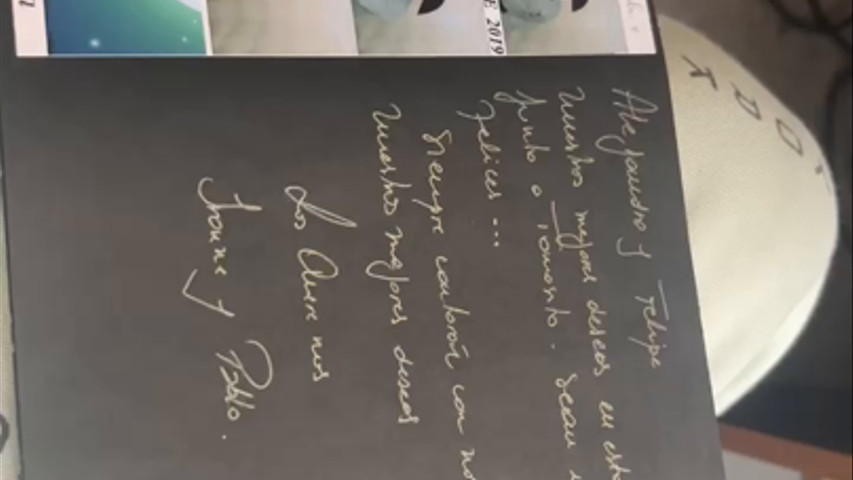 Alejandro y Felipe
Nuestros mejores deseos en est
junto a Tomasito. Sean
Felices...
Siempre contarán con no
Nuestros mejores deseos
Los Queremos
Ivonne y Pablo.
E 2019